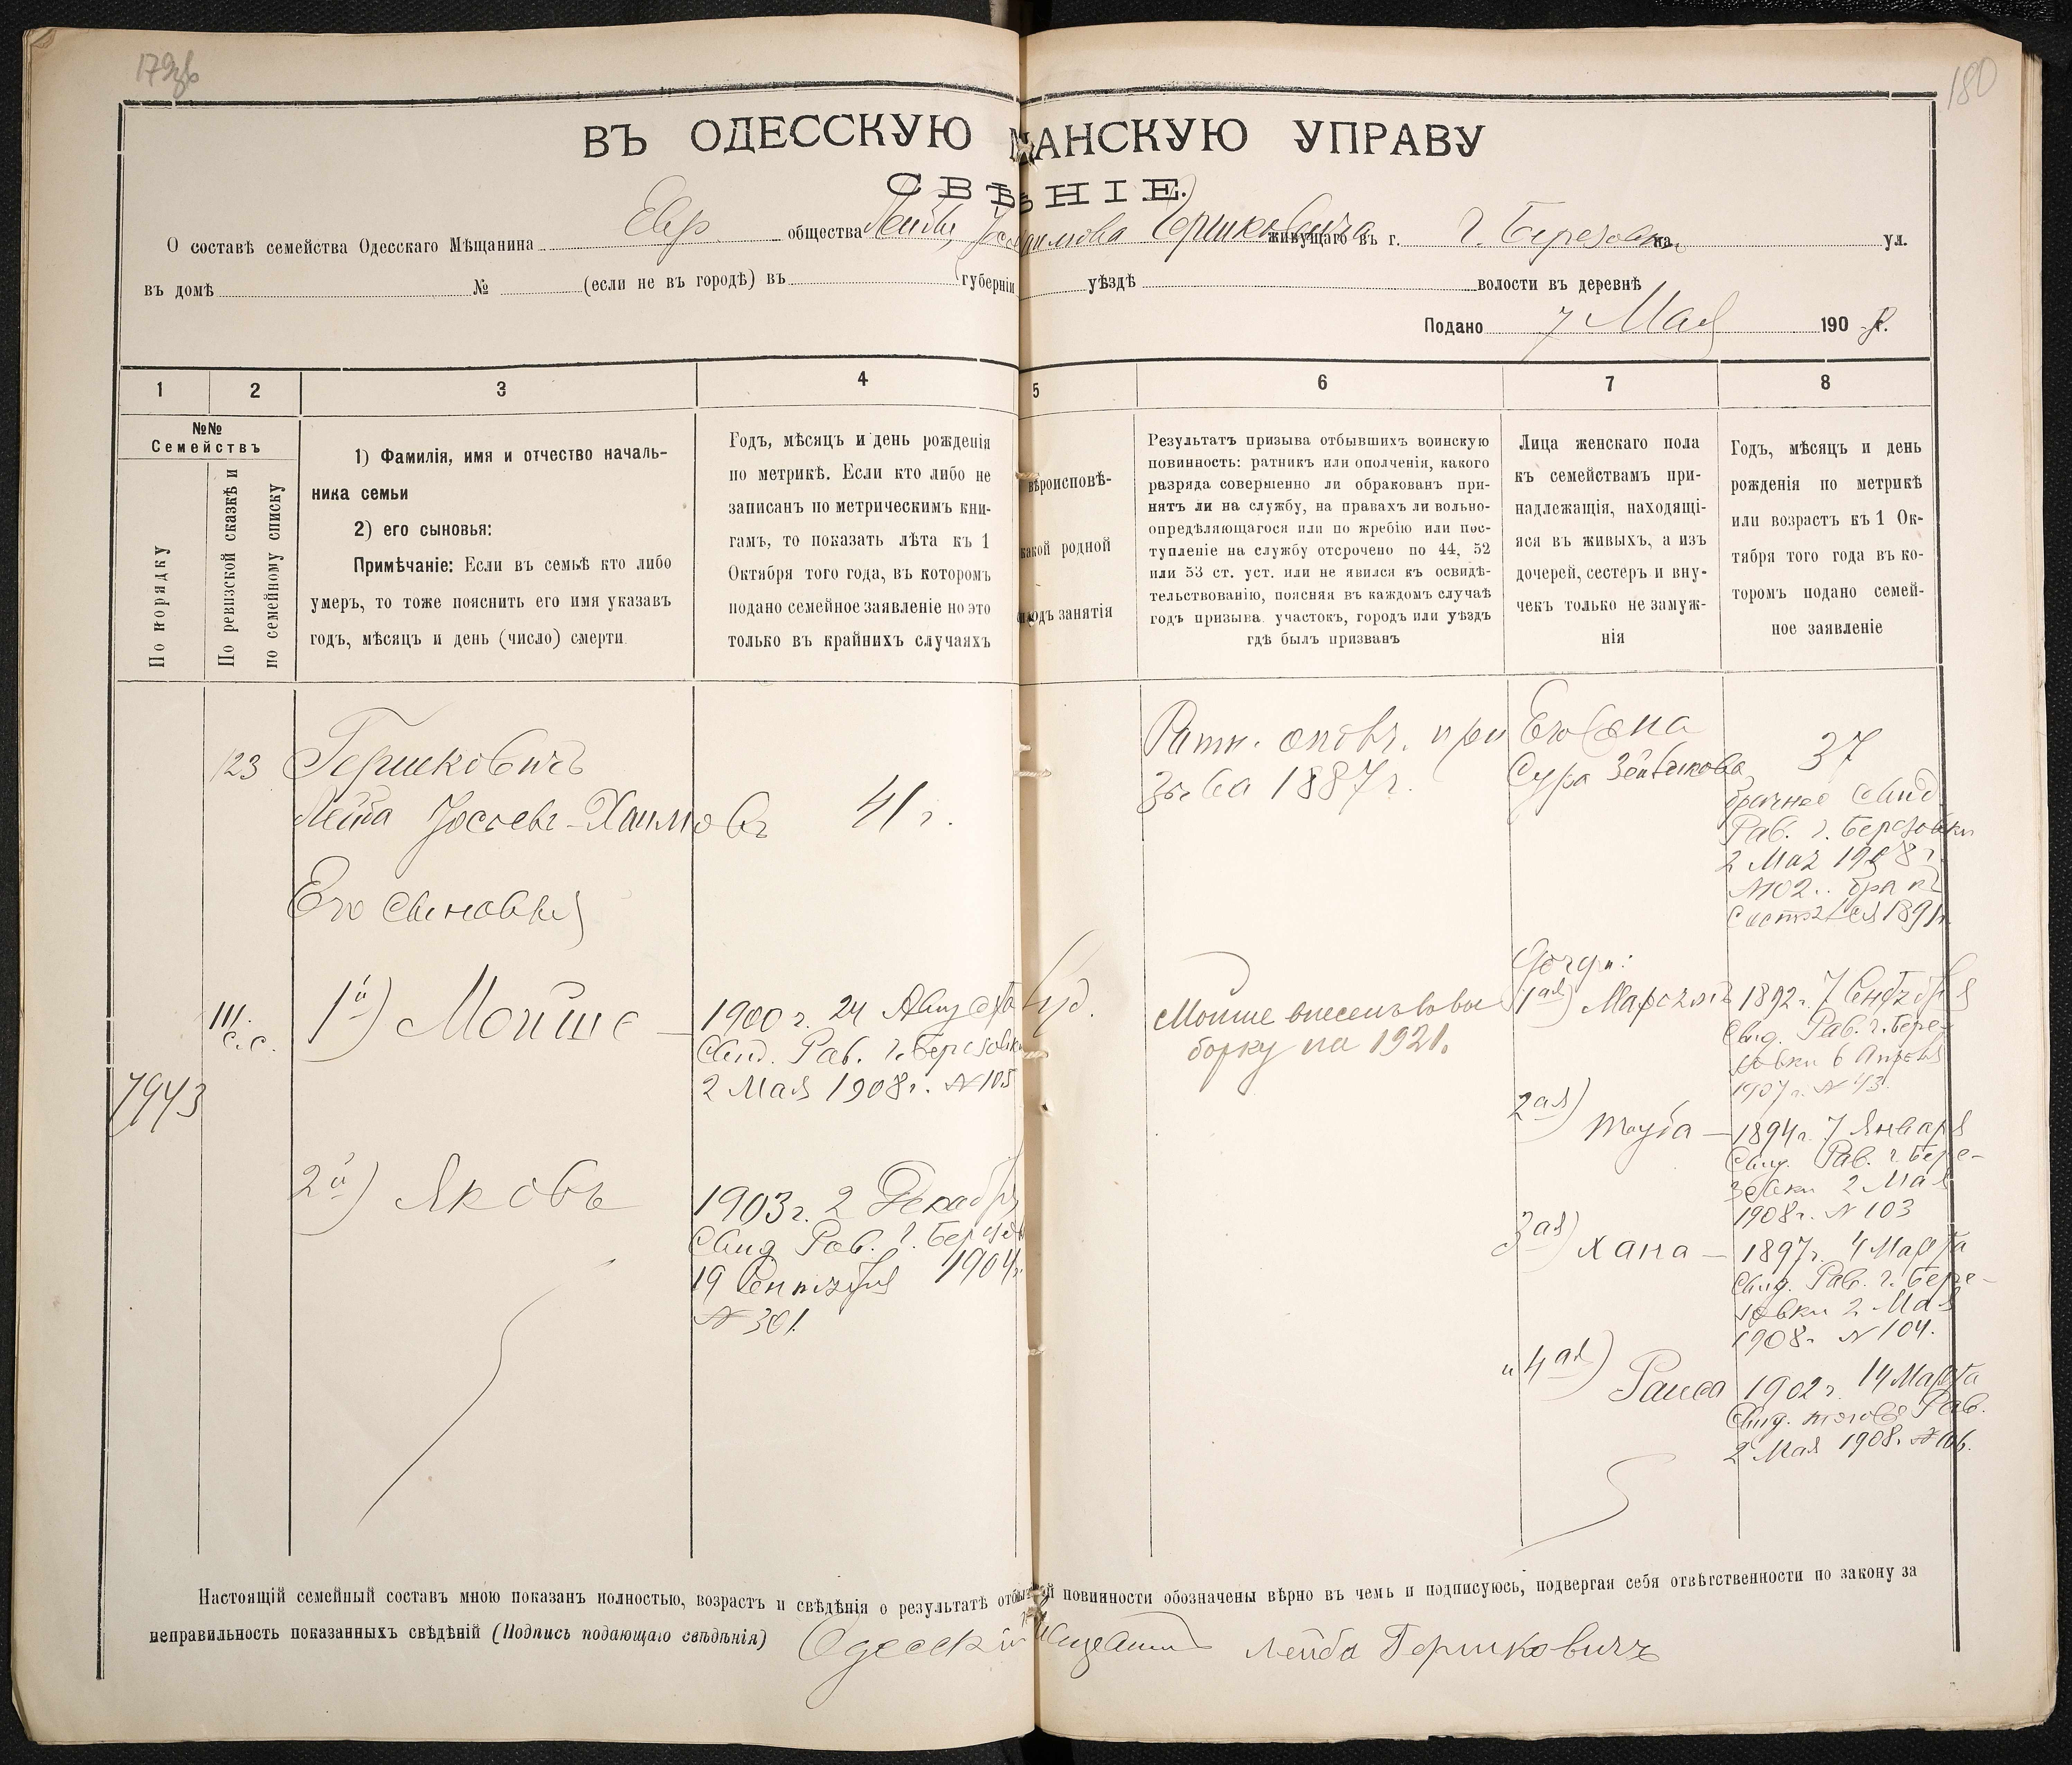 179об
180
ВЪ ОДЕССКУЮ МѢЩАНСКУЮ УПРАВУ
СВѢДѢНІЕ.
О составѣ семейства Одесскаго Мѣщанина Евр. общества Лейбы Госъ Хаимова Гершковича живущаго въ г. г. Березовка на ул.
въ домѣ № (если не въ городѣ) въ губерніи уѣздѣ волости въ деревнѣ
Подано 7 Мая 1908 г.
1 2 3 4 5 6 7 8
№№
Семействъ
По порядку
По ревизской сказкѣ и
по семейному списку
1) Фамилія, имя и отчество началь-
ника семьи
2) его сыновья:
Примѣчаніе: Если въ семьѣ кто либо
умеръ, то тоже пояснить его имя указавъ
годъ, мѣсяцъ и день (число) смерти.
Годъ, мѣсяцъ и день рожденія
по метрикѣ. Если кто либо не
записанъ по метрическимъ кни-
гамъ, то показать лѣта къ 1
Октября того года, въ которомъ
подано семейное заявленіе но это
только въ крайнихъ случаяхъ
вѣроисповѣ-
какой родной
родъ занятія
Результатъ призыва отбывшихъ воинскую
повинность: ратникъ или ополченія, какого
разряда совершенно ли обракованъ при-
нятъ ли на службу, на правахъ ли вольно-
опредѣляющагося или по жребію или пос-
тупленіе на службу отсрочено по 44, 52
или 53 ст. уст. или не явился къ освидѣ-
тельствованію, поясняя въ каждомъ случаѣ
годъ призыва. участокъ, городъ или уѣздъ
гдѣ былъ призванъ
Лица женскаго пола
къ семействамъ при-
надлежащія, находящі-
яся въ живыхъ, а изъ
дочерей, сестеръ и вну-
чекъ только не замуж-
нія
Годъ, мѣсяцъ и день
рожденія по метрикѣ
или возрастъ къ 1 Ок-
тября того года въ ко-
торомъ подано семей-
ное заявленіе
123
Гершковичъ
Лейба Іосъевъ-Хаимовъ
41 г.
Ратн. ополч. при
зыва 1887 г.
Его жена
Сура
37
брачное свид.
Рав. г. Березовки
2 Мая 1908 г.
№ 102. бракъ
состоялся 1891 г.
Его сыновья
7943
III.
с.с.
1й) Мойше —
1900 г. 24 Августа
Свид. Рав. г. Березовки
2 Мая 1908 г. № 105
Іуд.
Мойше внесенъ въ вы
борку на 1921.
2й) Яковъ
1903 г. 2 Декабря
Свид Рав. г. Березов
19 Сентября 1904 г.
№ 301.
Дочери:
1ая) 1892 г. 7 Сентября
Свид. Рав. г. Бере-
зовки 6 Апреля
1907 г. № 43.
2ая) Тауба — 1894 г. 7 Января
Свид. Рав. г. Бере-
зовки 2 Мая
1908 г. № 103
3ая) Хана — 1897 г. 4 Марта
Свид. Рав. г. Бере-
зовки 2 Мая
1908 г. № 104.
и 4ая) Раиса 1902 г. 14 Марта
Свид. того же Рав.
2 Мая 1908 г. № 106.
Настоящій семейный составъ мною показанъ полностью, возрастъ и свѣдѣнія о результатѣ повинности обозначены вѣрно въ чемъ и подписуюсь, подвергая себя отвѣтственности по закону за
неправильность показанныхъ свѣдѣній (Подпись подающаго свѣдѣнія) Одесскій Мещанинъ Лейба Гершковичъ